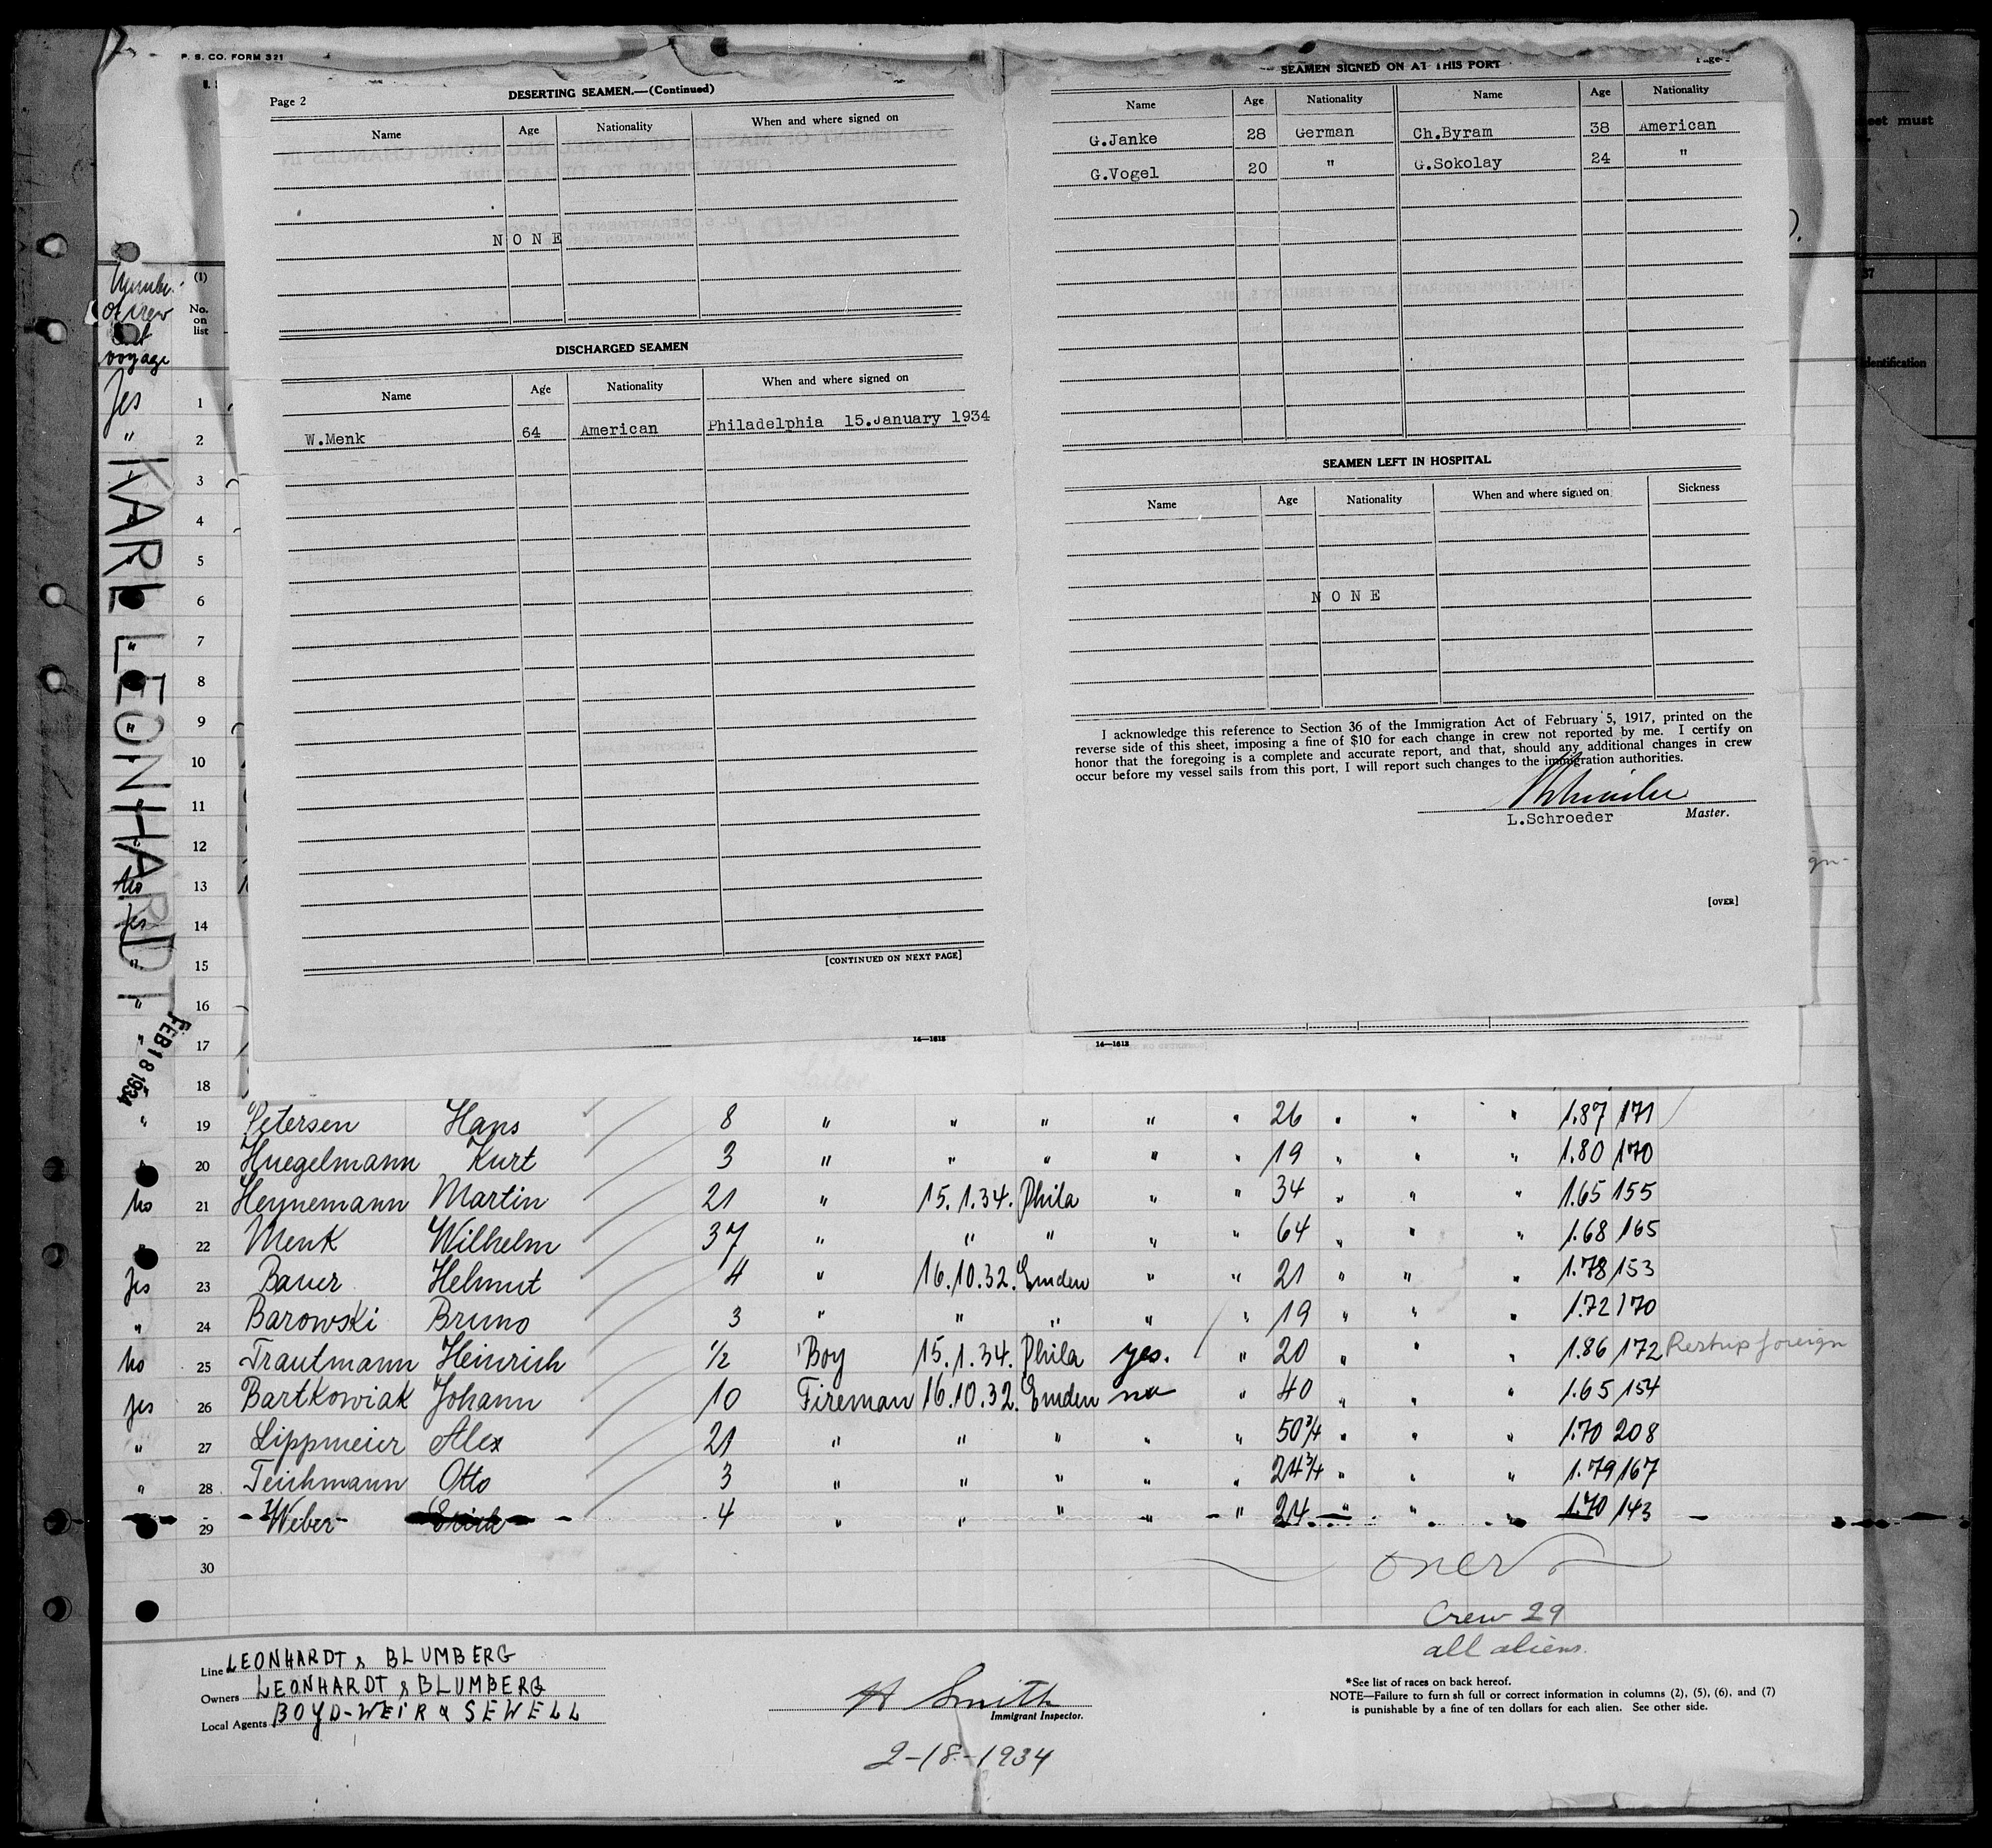 P. S. CO. FORM 321
Page 2
DESERTING SEAMEN.—(Continued)
Name Age Nationality When and where signed on
NONE
DISCHARGED SEAMEN
Name Age Nationality When and where signed on
W.Menk 64 American Philadelphia 15.January 1934
[CONTINUED ON NEXT PAGE]
SEAMEN SIGNED ON AT THIS PORT
Name Age Nationality Name Age Nationality
G.Janke 28 German Ch.Byram 38 American
G.Vogel 20 " G.Sokolay 24 "
SEAMEN LEFT IN HOSPITAL
Name Age Nationality When and where signed on Sickness
NONE
I acknowledge this reference to Section 36 of the Immigration Act of February 5, 1917, printed on the
reverse side of this sheet, imposing a fine of $10 for each change in crew not reported by me. I certify on
honor that the foregoing is a complete and accurate report, and that, should any additional changes in crew
occur before my vessel sails from this port, I will report such changes to the immigration authorities.
L.Schroeder Master.
[OVER]
16—1618 16—1618
eet must
37
identification
(1)
No.
on
list
voyage
KARL LEONHARDT
FEB 18 1934
Yes 1
" 2
" 3
4
" 5
6
" 7
8
" 9
10
" 11
" 12
No 13
Yes 14
" 15
" 16
" 17
18
" 19 Petersen Hans 8 " " " " " 26 " " " 1.87 171
20 Huegelmann Kurt 3 " " " " " 19 " " " 1.80 170
No 21 Heynemann Martin 21 " 15.1.34. Phila " " 34 " " " 1.65 155
22 Menk Wilhelm 37 " " " " " 64 " " " 1.68 165
Yes 23 Bauer Helmut 4 " 16.10.32. Emden " " 21 " " " 1.78 153
" 24 Barowski Bruno 3 " " " " " 19 " " " 1.72 170
No 25 Trautmann Heinrich 1/2 Boy 15.1.34. Phila yes. " 20 " " " 1.86 172 foreign
yes 26 Bartkowiak Johann 10 Fireman 16.10.32. Emden no " 40 " " " 1.65 154
" 27 Lippmeier Alex 21 " " " " " 50 3/4 " " " 1.70 208
" 28 Teichmann Otto 3 " " " " " 24 3/4 " " " 1.79 167
29 Weber Erich 4 " " " " " 24 " " " 1.70 143
30
Crew 29
all aliens.
Line LEONHARDT & BLUMBERG
Owners LEONHARDT & BLUMBERG
Local Agents BOYD-WEIR & SEWELL
A Smith
Immigrant Inspector.
2-18-1934
*See list of races on back hereof.
NOTE—Failure to furnish full or correct information in columns (2), (5), (6), and (7)
is punishable by a fine of ten dollars for each alien. See other side.